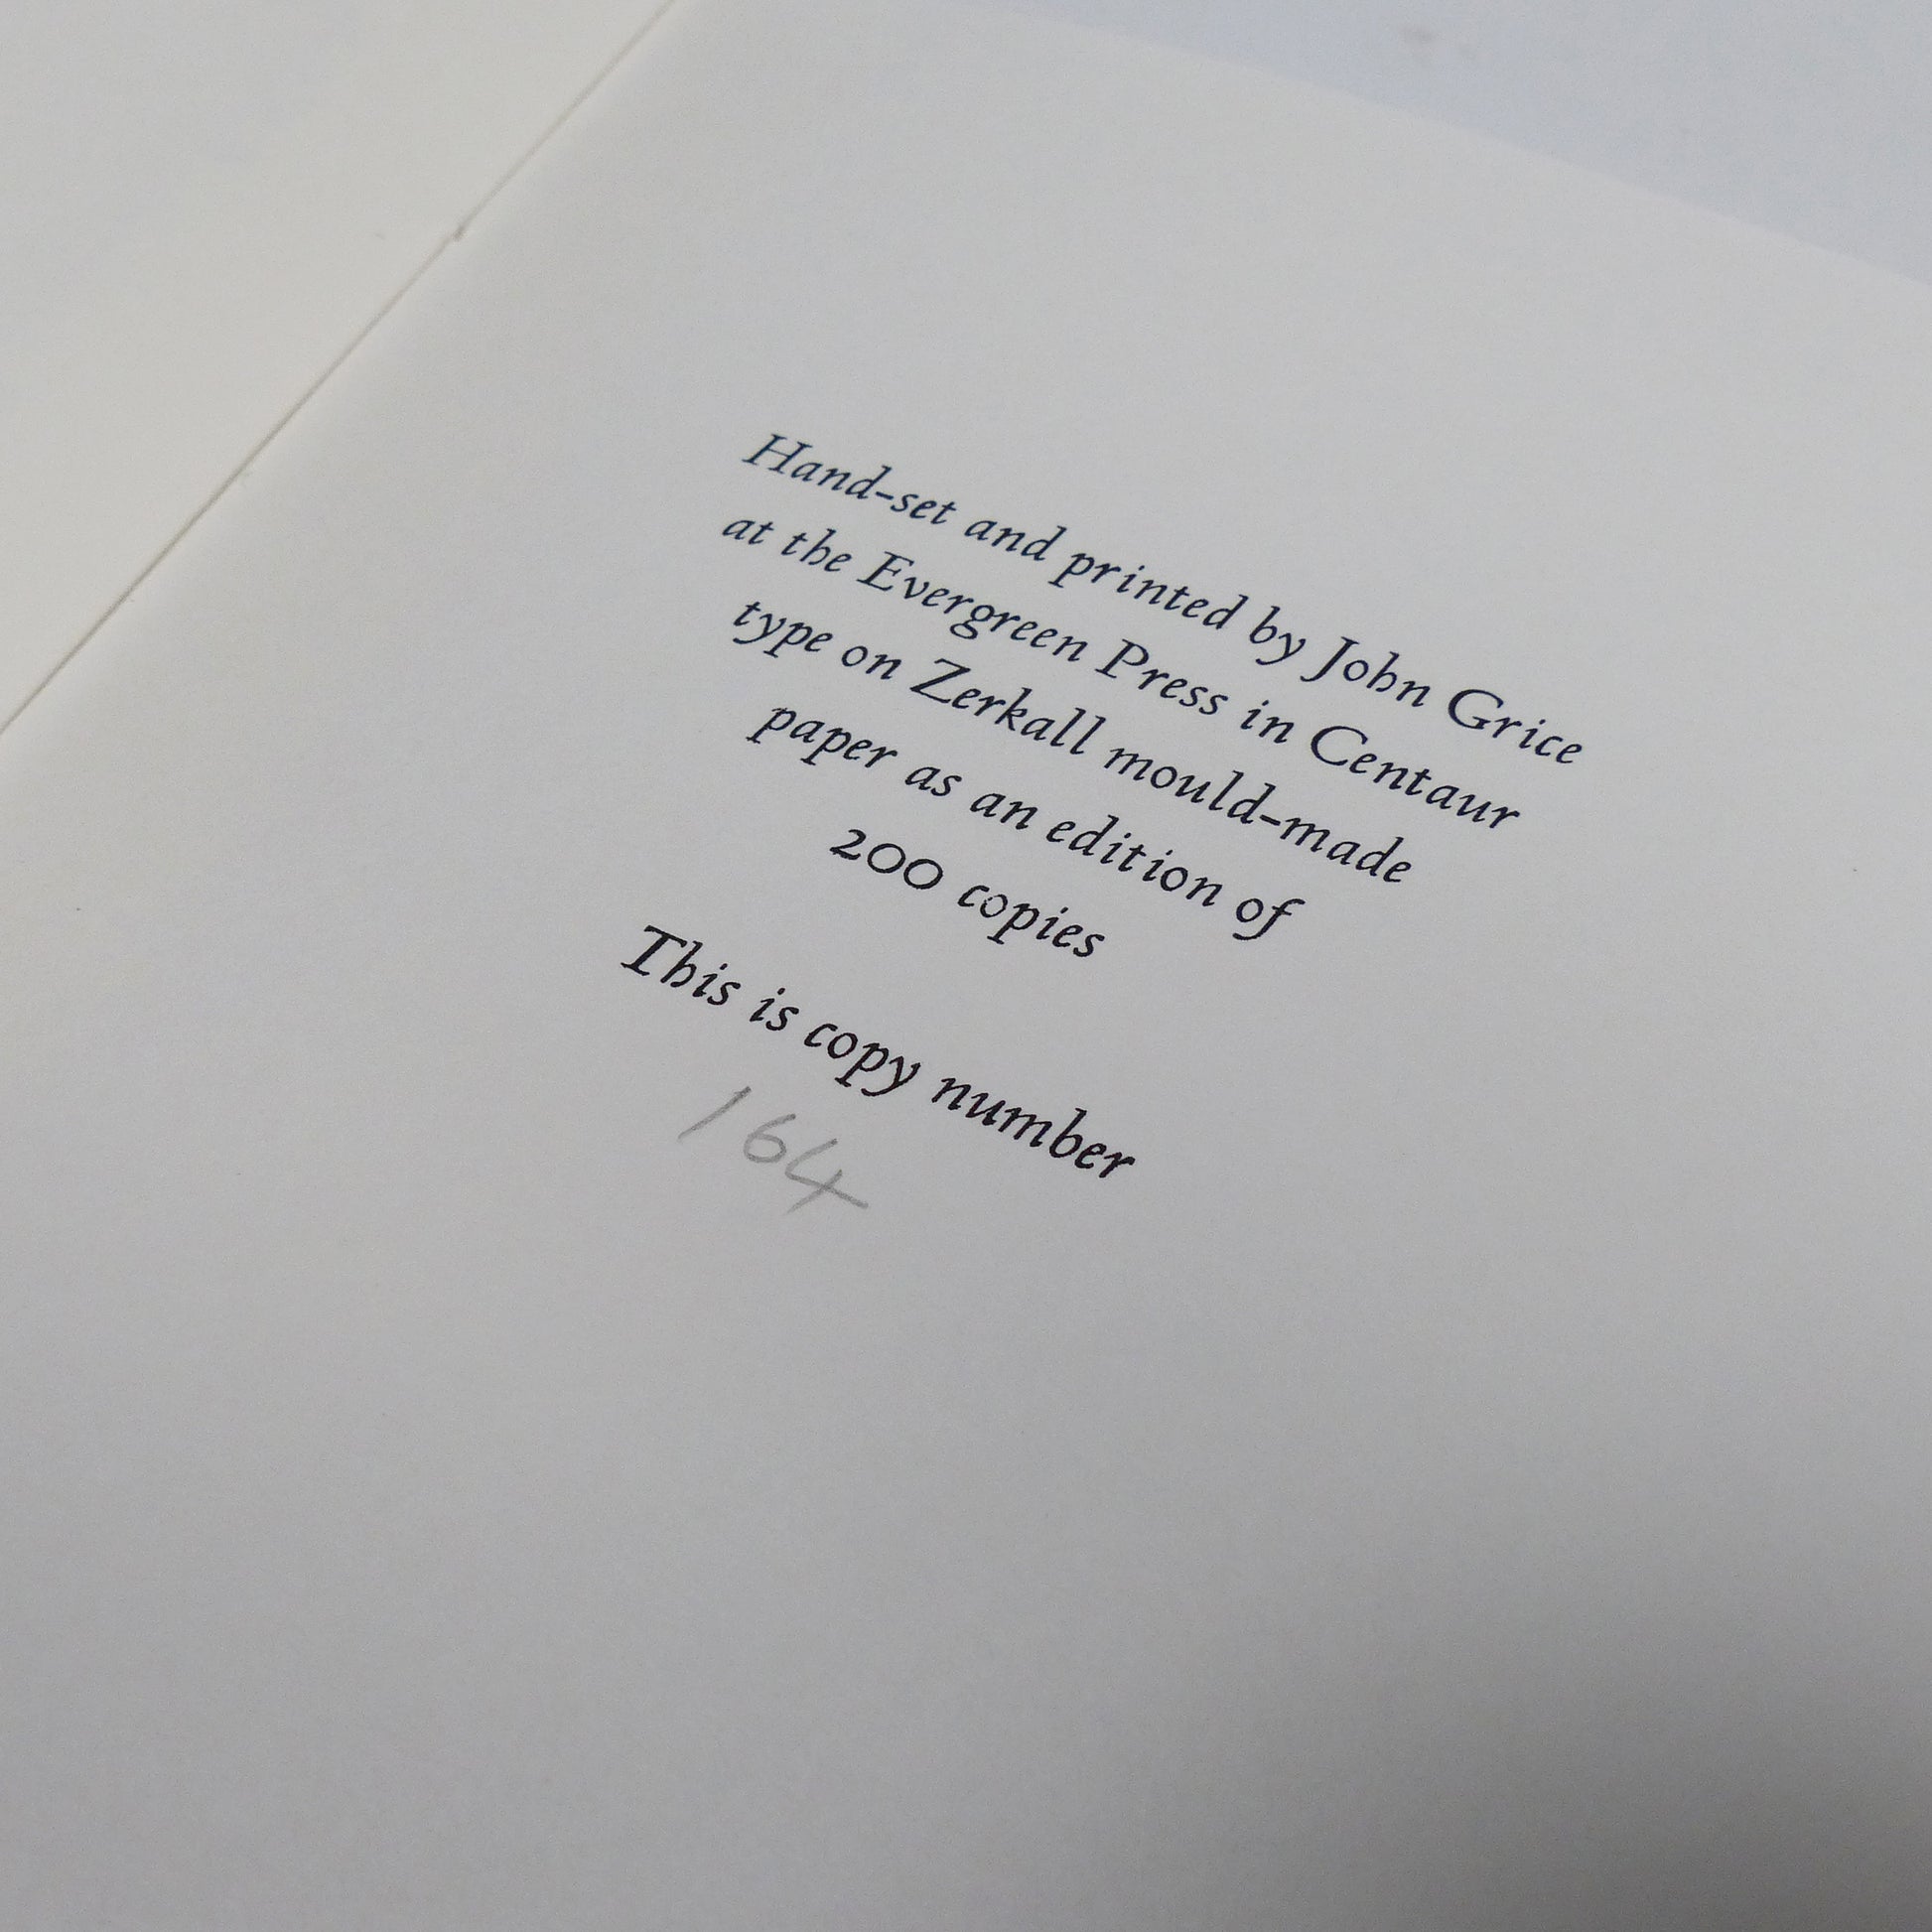 Hand-set and printed by John Grice
at the Evergreen Press in Centaur
type on Zerkall mould-made
paper as an edition of
200 copies
This is copy number
164